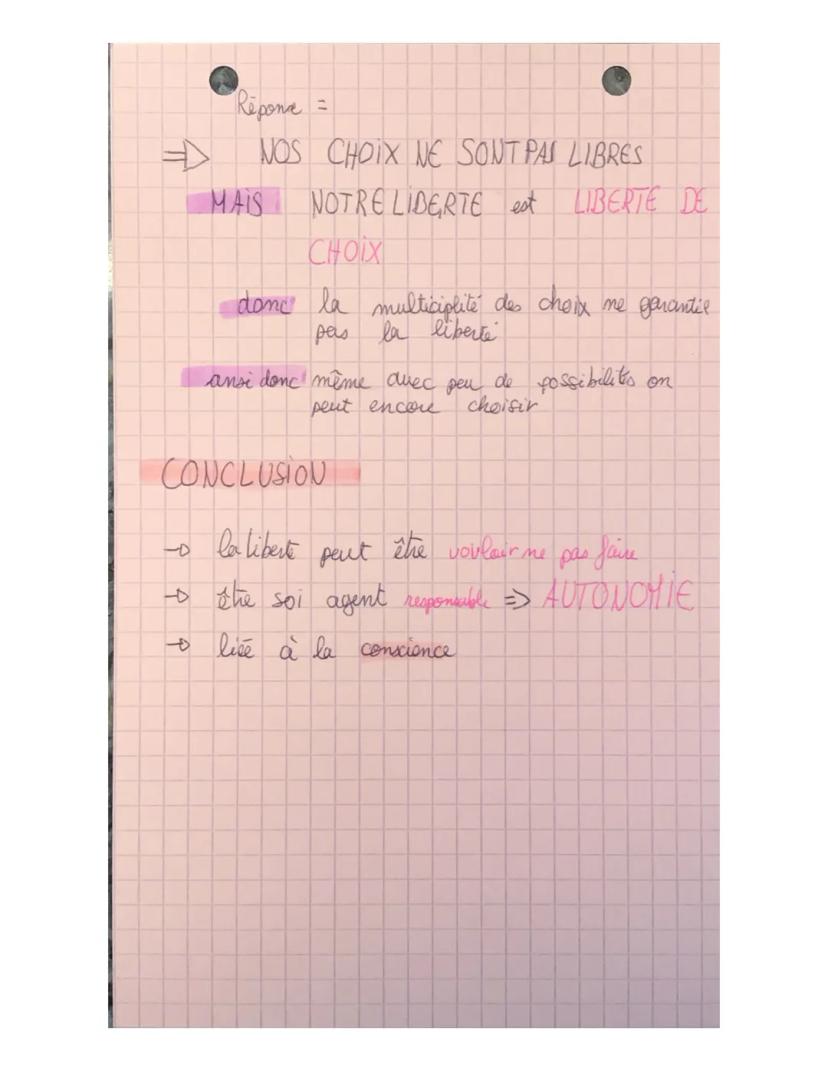 Réponse =
⇒ NOS CHOIX NE SONT PAS LIBRES
MAIS NOTRE LIBERTE est LIBERTE DE
CHOIX
donc la multiciplité des choix ne garantie
pas la liberté
ansi donc même avec peu de possibilités on
peut encore choisir
CONCLUSION
→ la liberté peut être vouloir ne pas faire
→ être soi agent responsable => AUTONOMIE
→ liée à la conscience